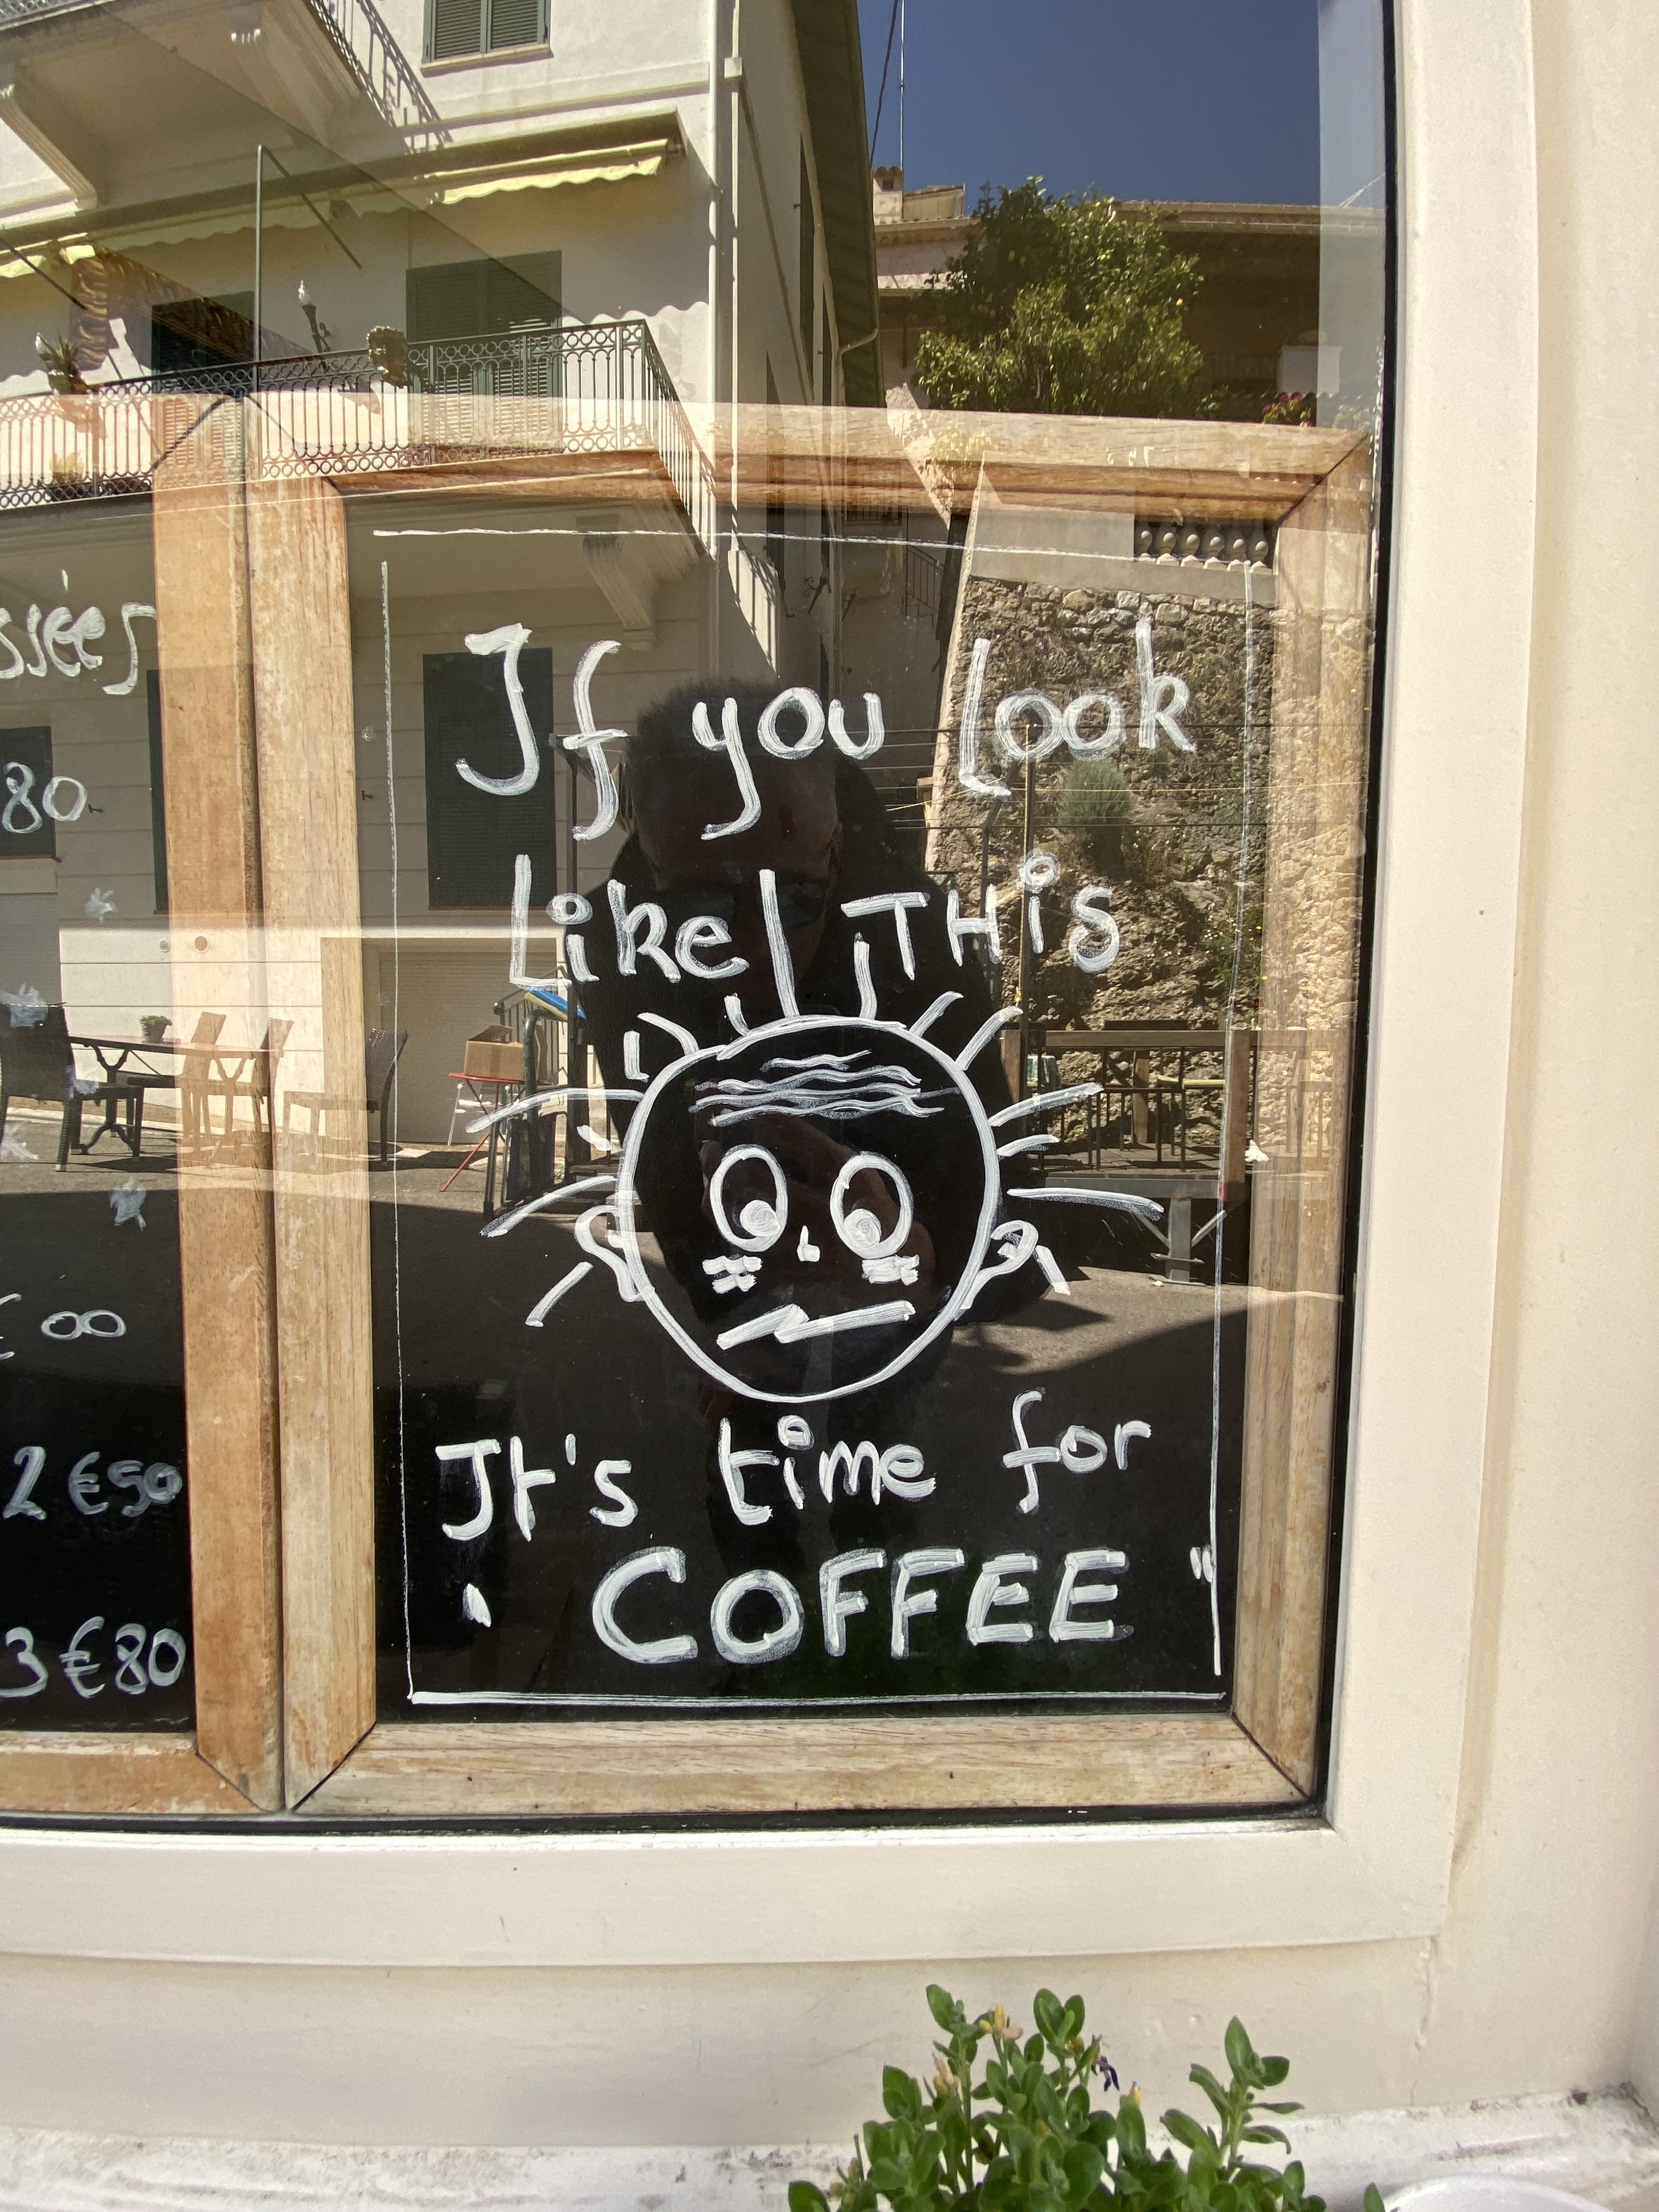 ssées
80
€ 00
2 €50
3 €80
If you Look
Like THiS
It's time for
" COFFEE "